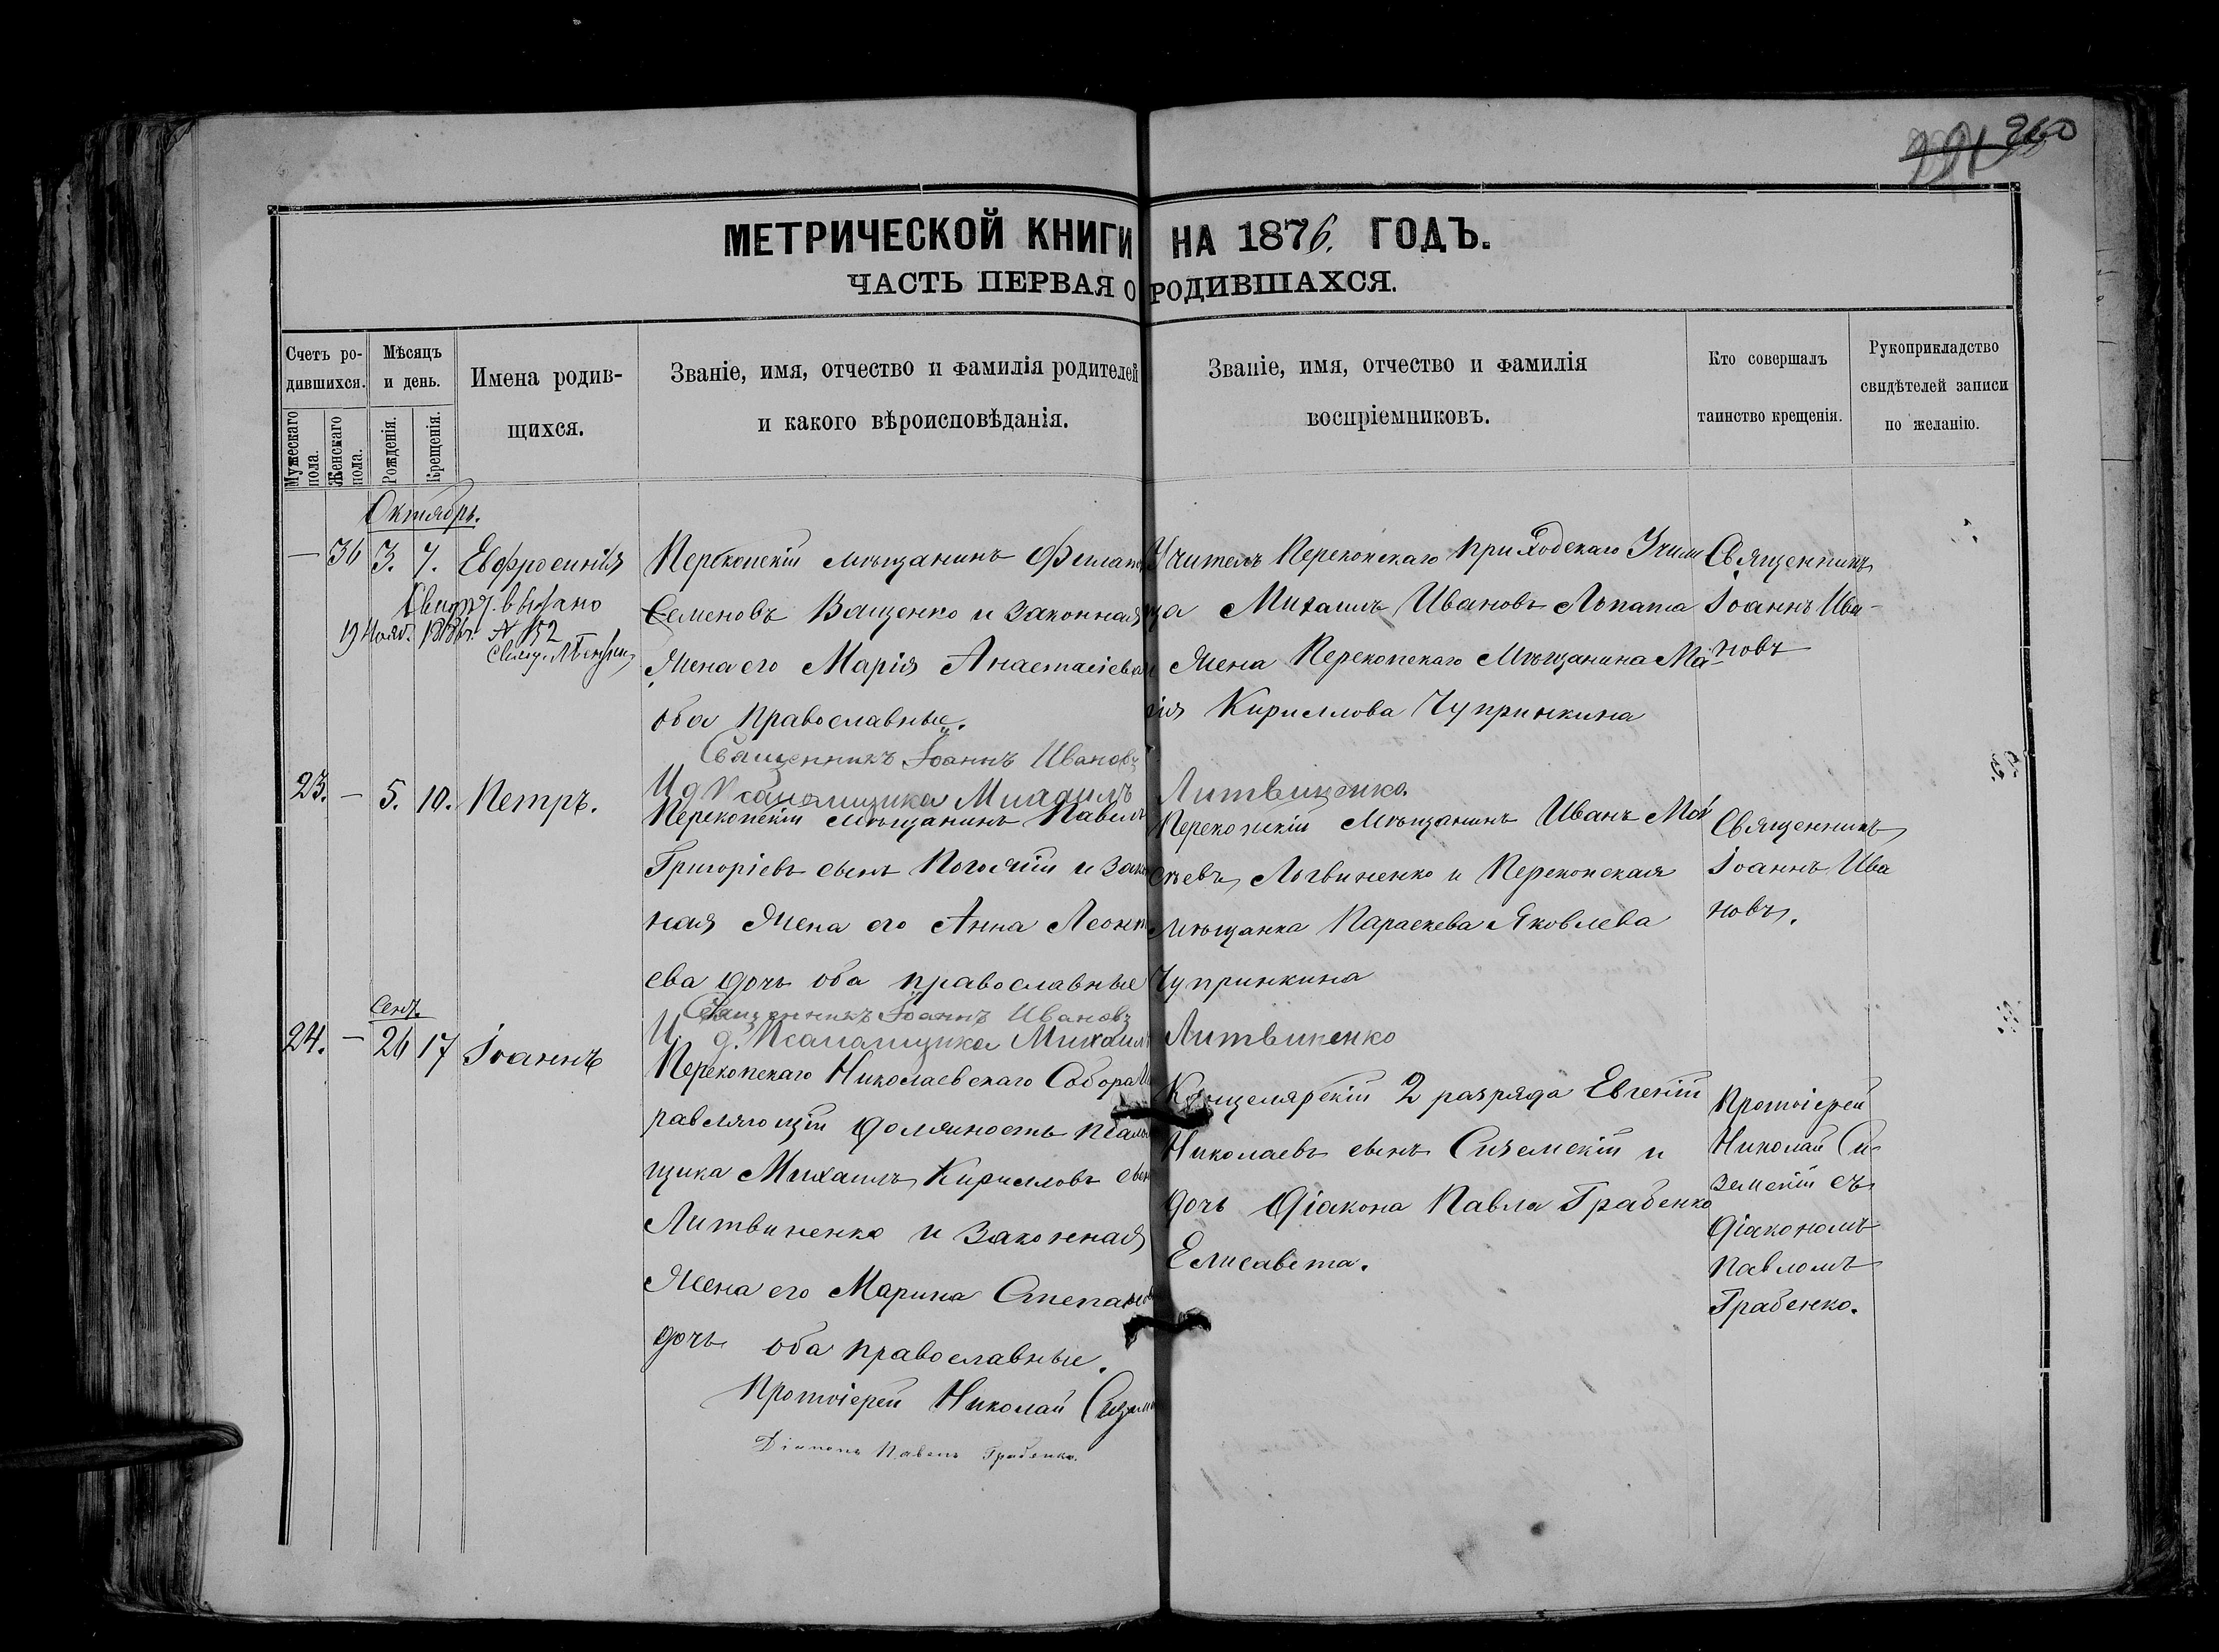 260
МЕТРИЧЕСКОЙ КНИГИ НА 1876. ГОДЪ.
ЧАСТЬ ПЕРВАЯ О РОДИВШАХСЯ.
Счетъ ро-
дившихся.
Мужескаго пола.
Женскаго пола.
Мѣсяцъ
и день.
Рожденія.
Крещенія.
Имена родив-
щихся.
Званіе, имя, отчество и фамилія родителей
и какого вѣроисповѣданія.
Званіе, имя, отчество и фамилія
воспріемниковъ.
Кто совершалъ
таинство крещенія.
Рукоприкладство
свидѣтелей записи
по желанію.
Октябрь.
— 36 3. 7. Евфросинія
выдано
19 Нояб. № 152
Перекопскій мѣщанинъ
Семеновъ Ващенко и законная
жена его Марія Анастасіева
оба православные.
Священникъ Іоаннъ Ивановъ
И д Псаломщика Михаилъ Литвиненко.
Учитель Перекопскаго приходскаго Учили
ща Михаилъ Ивановъ Лопата
и жена Перекопскаго мѣщанина Ма
рія Кириллова Чупринкина
Священникъ
Іоаннъ Ива-
новъ
23. — 5. 10. Петръ.
Перекопскій мѣщанинъ Павелъ
Григоріевъ сынъ и закон
ная жена его Анна Леонт
ева дочь оба православные
Священникъ Іоаннъ Ивановъ
И д. Псаломщика Михаилъ Литвиненко
Перекопскій мѣщанинъ Иванъ Мои
сеевъ Логвиненко и Перекопская
мѣщанка Параскева Яковлева
Чупринкина
Священникъ
Іоаннъ Ива
новъ.
Сент.
24. — 26 17 Іоаннъ
Перекопскаго Николаевскаго Собора Исп
равляющій должность псалом
щика Михаилъ Кирилловъ сынъ
Литвиненко и законная
жена его Марина Степанова
дочь оба православные.
Протоіерей Николай Сиземскій
Діаконъ Павелъ Грабенко.
Канцелярскій 2 разряда Евгеній
Николаевъ сынъ Сиземскій и
дочь Діакона Павла Грабенко
Елисавета.
Протоіерей
Николай Си
земскій съ
Діакономъ
Павломъ
Грабенко.